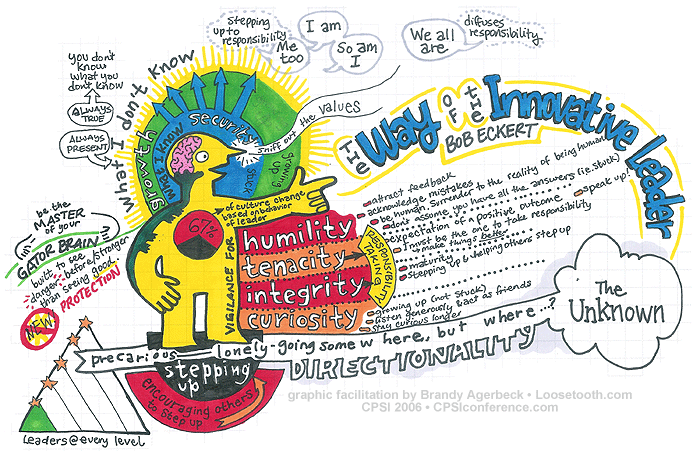 stepping
up to
responsibility
Me
too
I am
So am
I
We all
are
diffuses
responsibility
you don't
know
what you
don't know
ALWAYS
TRUE
ALWAYS
PRESENT
What I don't know
growth
WHAT I KNOW
security
stuck
growing
up
sniff out the values
THE
Way
OF
THE
Innovative
Leader
BOB ECKERT
be the
MASTER
of your
GATOR BRAIN
built to see
danger before/stronger
than seeing good.
PROTECTION
NEW
67%
of culture change
based on behavior
of leader
VIGILANCE FOR
humility
tenacity
integrity
curiosity
RESPONSIBILITY
TAKING
attract feedback
acknowledge mistakes
be human. surrender to the reality of being human
don't assume you have all the answers (i.e. stuck)
expectation of a positive outcome
speak up!
I must be the one to take responsibility
to make things better
maturity
stepping up & helping others step up
growing up (not stuck)
listen generously & act as friends
stay curious longer
The
Unknown
precarious lonely-going somewhere, but where...?
DIRECTIONALITY
stepping
up
encouraging others
to step up
Leaders@every level
graphic facilitation by Brandy Agerbeck • Loosetooth.com
CPSI 2006 • CPSIconference.com